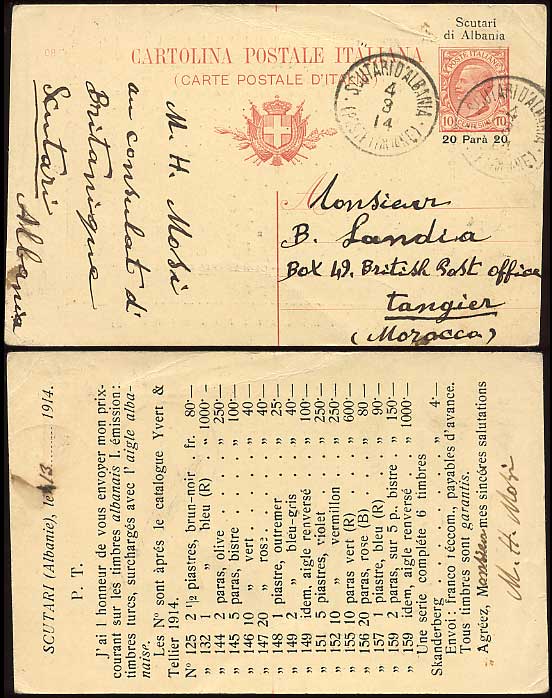 Scutari
di Albania
CARTOLINA POSTALE ITALIANA
(CARTE POSTALE D'ITALIE)
POSTE ITALIANE
10 CENTESIMI 10
20 Parà 20
SCUTARI D'ALBANIA
4
3
14
(POSTE ITALIANE)
SCUTARI D'ALBANIA
M. H. Mosi
au consulat d'
Britanique
Scutari
Albania
Monsieur
B. Landia
Box 49. British Post office
tangier
(Morocca)
SCUTARI (Albanie), le 13 1914.
P. T.
J'ai l honneur de vous envoyer mon prix-
courant sur les timbres albanais I. émission:
timbres turcs, surchargés avec l'aigle alba-
naise.
Les Nº sont aprés le catalogue Yvert &
Tellier 1914.
Nº 125 2 1/2 piastres, brun-noir fr. 80·—
„ 132 1 „ bleu (R) „ 1000·—
„ 144 2 paras, olive . . . . „ 250·—
„ 145 5 paras, bistre . . . . „ 100·—
„ 146 10 „ vert . . . . „ 40·—
„ 147 20 „ rose . . . . „ 40·—
„ 148 1 piastre, outremer . . „ 25·—
„ 149 2 „ bleu-gris . . „ 40·—
„ 149 idem, aigle renversé „ 100·—
„ 151 5 piastres, violet . . . „ 250·—
„ 152 10 „ vermillon . . „ 250·—
„ 155 10 paras vert (R) . . . „ 600·—
„ 156 20 paras, rose (B) . . . „ 80·—
„ 157 1 piastre, bleu (R) . . . „ 90·—
„ 159 2 paras, sur 5 p., bistre „ 150·—
„ 159 idem, aigle renversé . „ 1000·—
Une serie complète 6 timbres
Skanderberg . . . . . . . „ 4·—
Envoi: franco réccom., payables d'avance.
Tous timbres sont garantis.
Agréez, Monsieur mes sincères salutations
M. H. Mosi